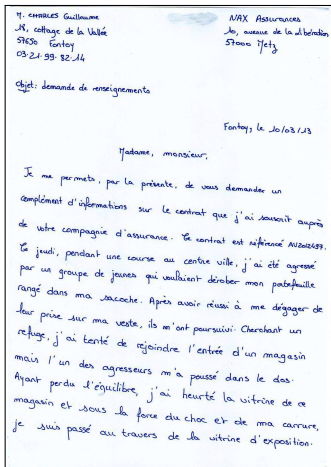 M. CHARLES Guillaume
18, cottage de la Vallée
57650 Fontoy
03.21.99.32.14
Objet: demande de renseignements
NAX Assurances
10, avenue de la libération
57000 Metz
Fontoy, le 10/03/13
Madame, monsieur,
Je me permets, par la présente, de vous demander un
complément d'informations sur le contrat que j'ai souscrit auprès
de votre compagnie d'assurance. Ce contrat est référencé AV2012497.
Ce jeudi, pendant une course au centre ville, j'ai été agressé
par un groupe de jeunes qui voulaient dérober mon portefeuille
rangé dans ma sacoche. Après avoir réussi à me dégager de
leur prise sur ma veste, ils m'ont poursuivi. Cherchant un
refuge, j'ai tenté de rejoindre l'entrée d'un magasin
mais l'un des agresseurs m'a poussé dans le dos.
Ayant perdu l'équilibre, j'ai heurté la vitrine de ce
magasin et sous la force du choc et de ma carrure,
je suis passé au travers de la vitrine d'exposition.